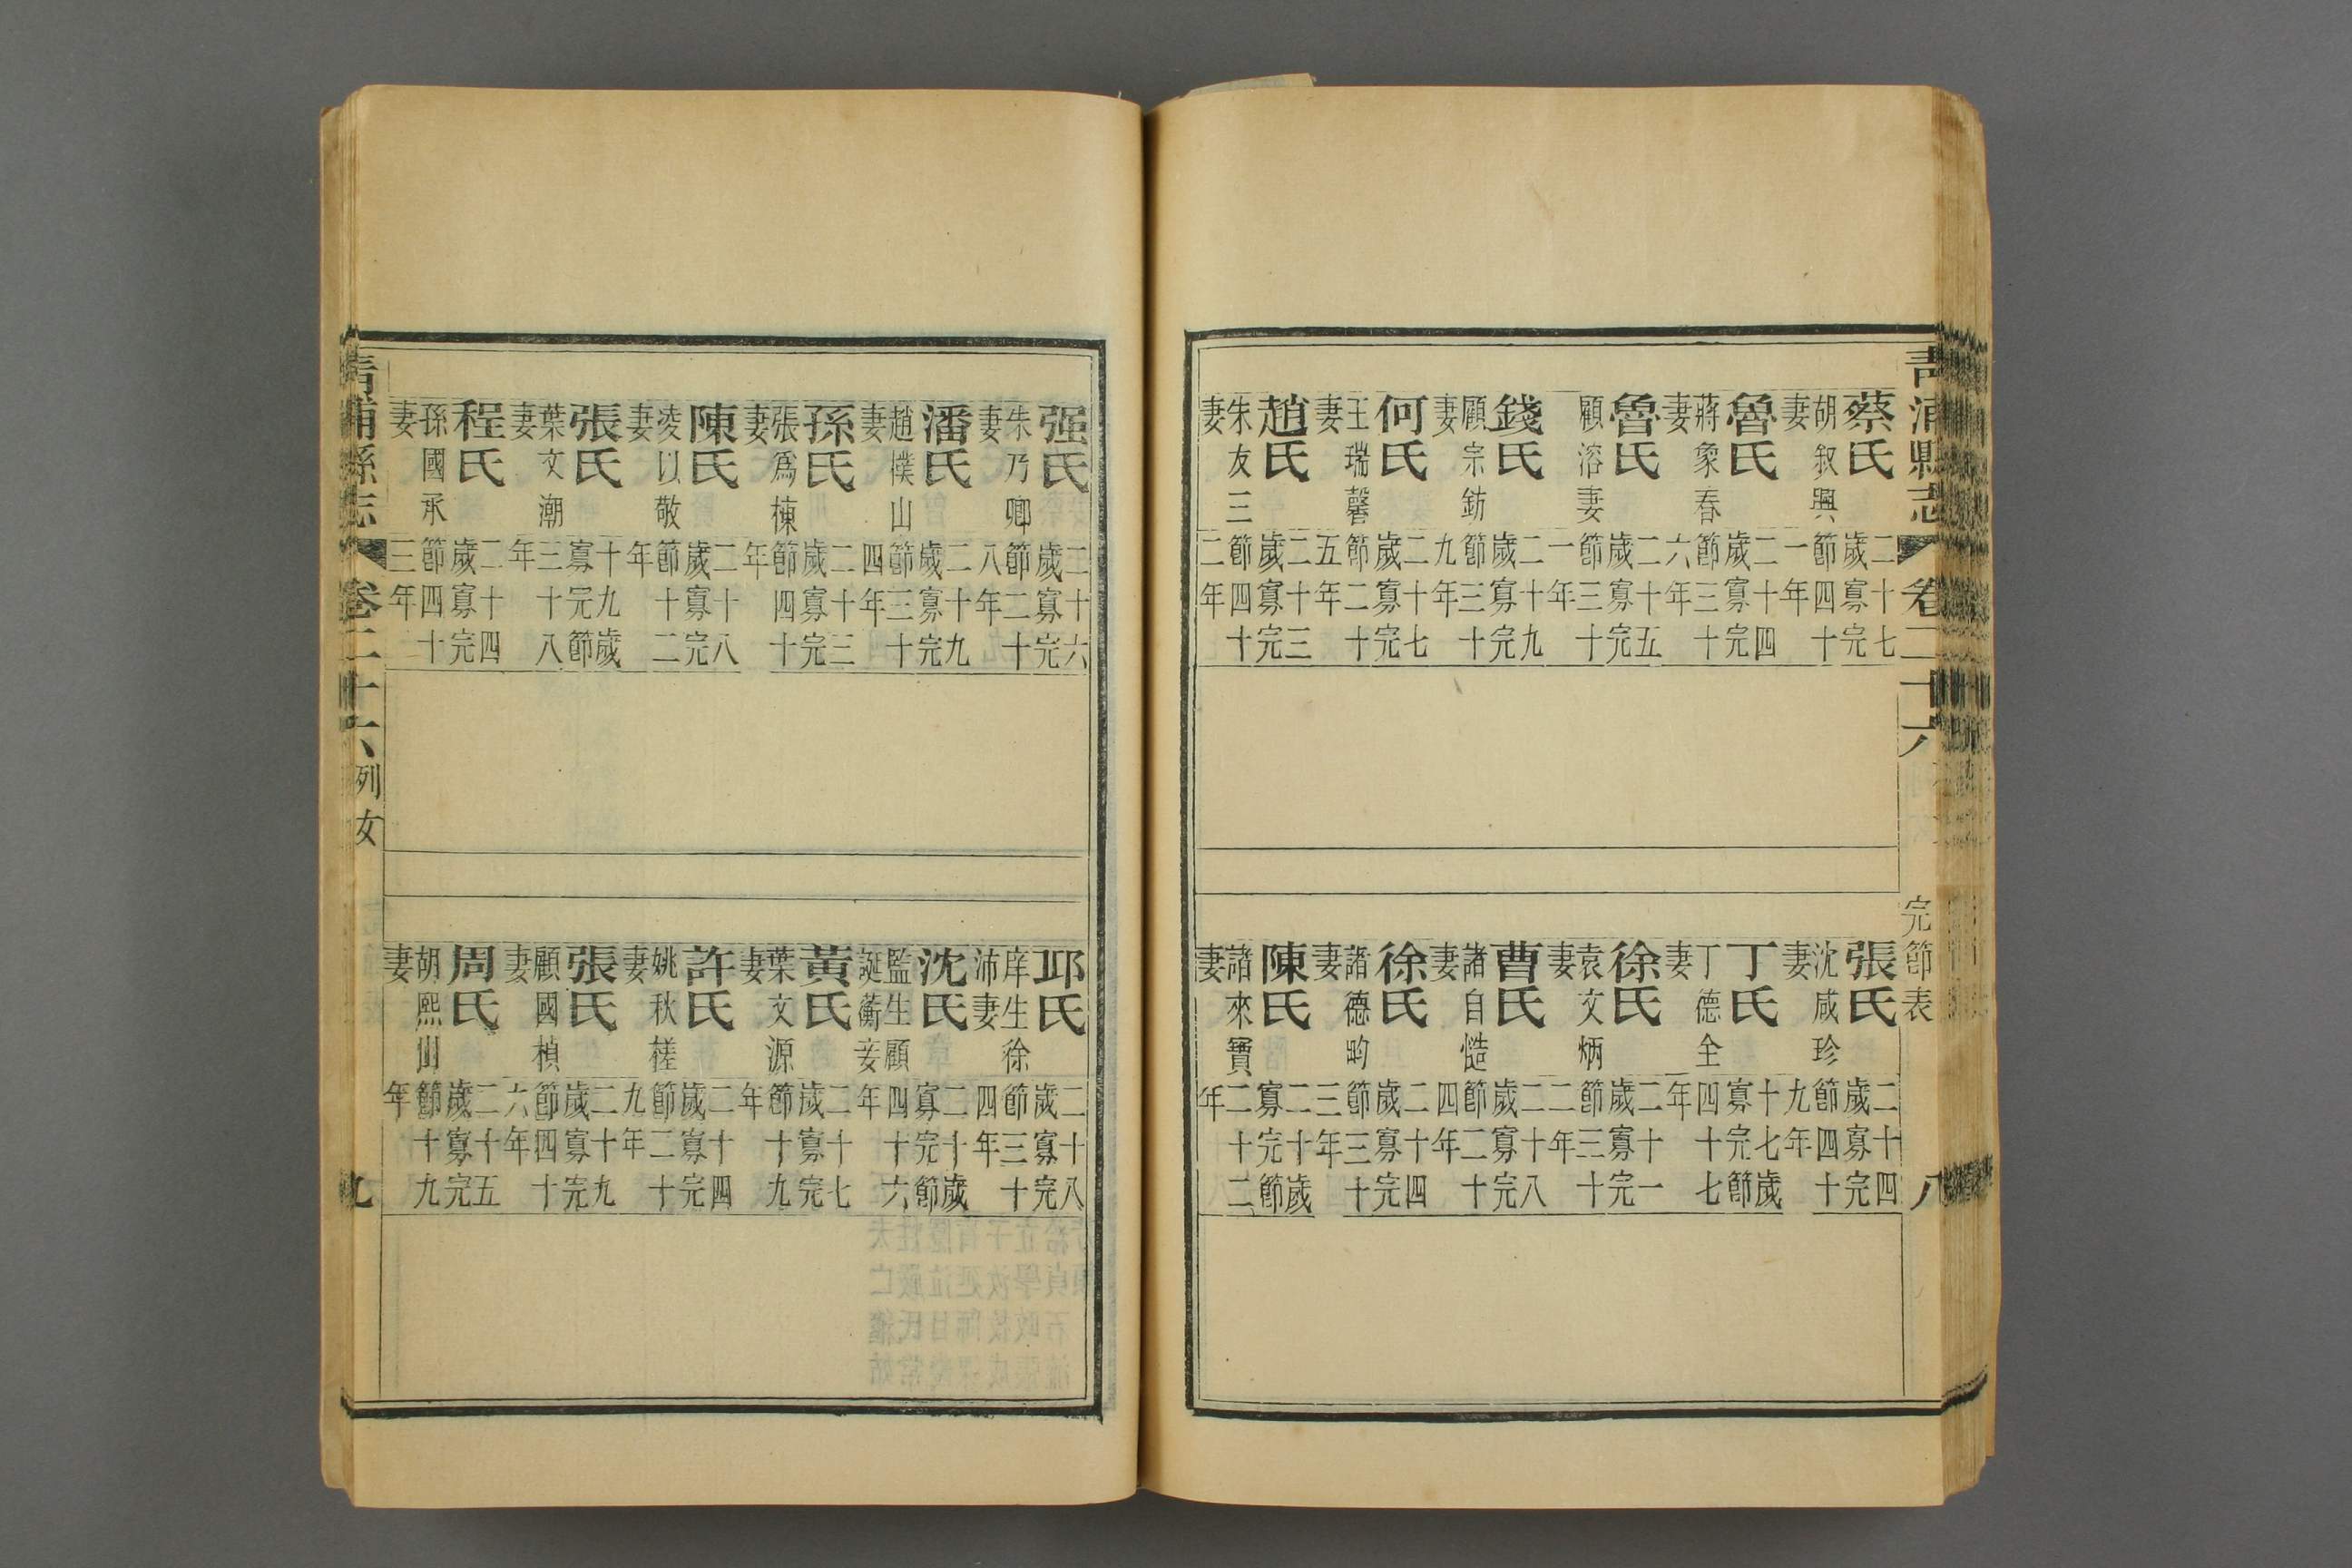 青浦縣志
卷二十六
完節表
八
蔡氏
胡叙興妻
二十七歲寡完節四十一年
魯氏
蔣象春妻
二十四歲寡完節三十六年
魯氏
顧溶妻
二十五歲寡完節三十一年
錢氏
顧宗鈁妻
二十九歲寡完節三十九年
何氏
王瑞馨妻
二十七歲寡完節二十五年
趙氏
朱友三妻
二十三歲寡完節四十二年
張氏
沈咸珍妻
二十四歲寡完節四十九年
丁氏
丁德全妻
十七歲寡完節四十七年
徐氏
袁文炳妻
二十一歲寡完節三十二年
曹氏
諸自慥妻
二十八歲寡完節二十四年
徐氏
諸德昀妻
二十四歲寡完節三十三年
陳氏
諸來寶妻
二十歲寡完節二十二年
强氏
朱乃卿妻
二十六歲寡完節二十八年
潘氏
趙樸山妻
二十九歲寡完節三十四年
孫氏
張爲棟妻
二十三歲寡完節四十年
陳氏
凌以敬妻
二十八歲寡完節十二年
張氏
葉文潮妻
十九歲寡完節三十八年
程氏
孫國承妻
二十四歲寡完節四十三年
邱氏
庠生徐沛妻
二十八歲寡完節三十四年
沈氏
監生顧誕蘅妾
二十歲寡完節四十六年
黃氏
葉文源妻
二十七歲寡完節十九年
許氏
姚秋槎妻
二十四歲寡完節二十九年
張氏
顧國楨妻
二十九歲寡完節四十六年
周氏
胡熙山妻
二十五歲寡完節十九年
青浦縣志
卷二十六
列女
九